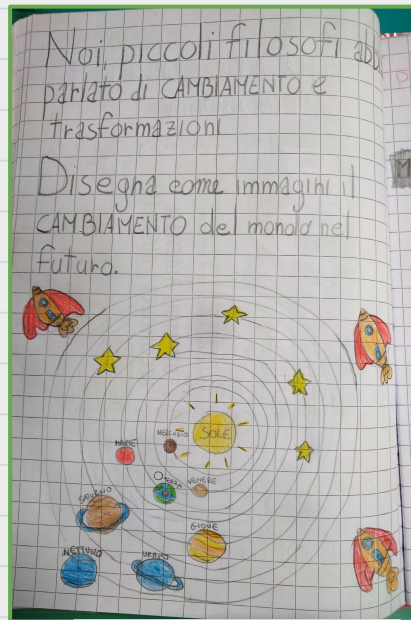 Noi, piccoli filosofi abb
parlato di CAMBIAMENTO e
trasformazioni
Disegna come immagini il
CAMBIAMENTO del mondo nel
futuro.
SOLE
MERCURIO
MARTE
TERRA
VENERE
SATURNO
GIOVE
NETTUNO
URANO